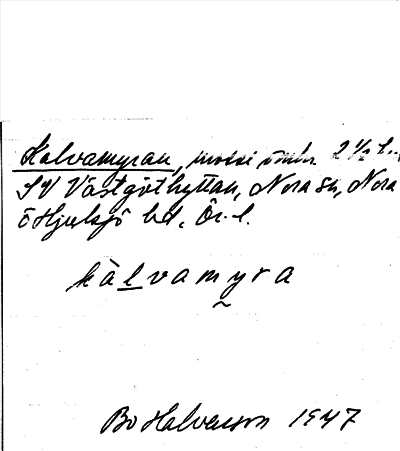 Kalvamyran, mosse omkr. 2 1/2 km
SV Västgöthyttan, Nora sn, Nora
o Hjulsjö bd, Ör. l.
kàlvamyra
Bo Halvarson 1947